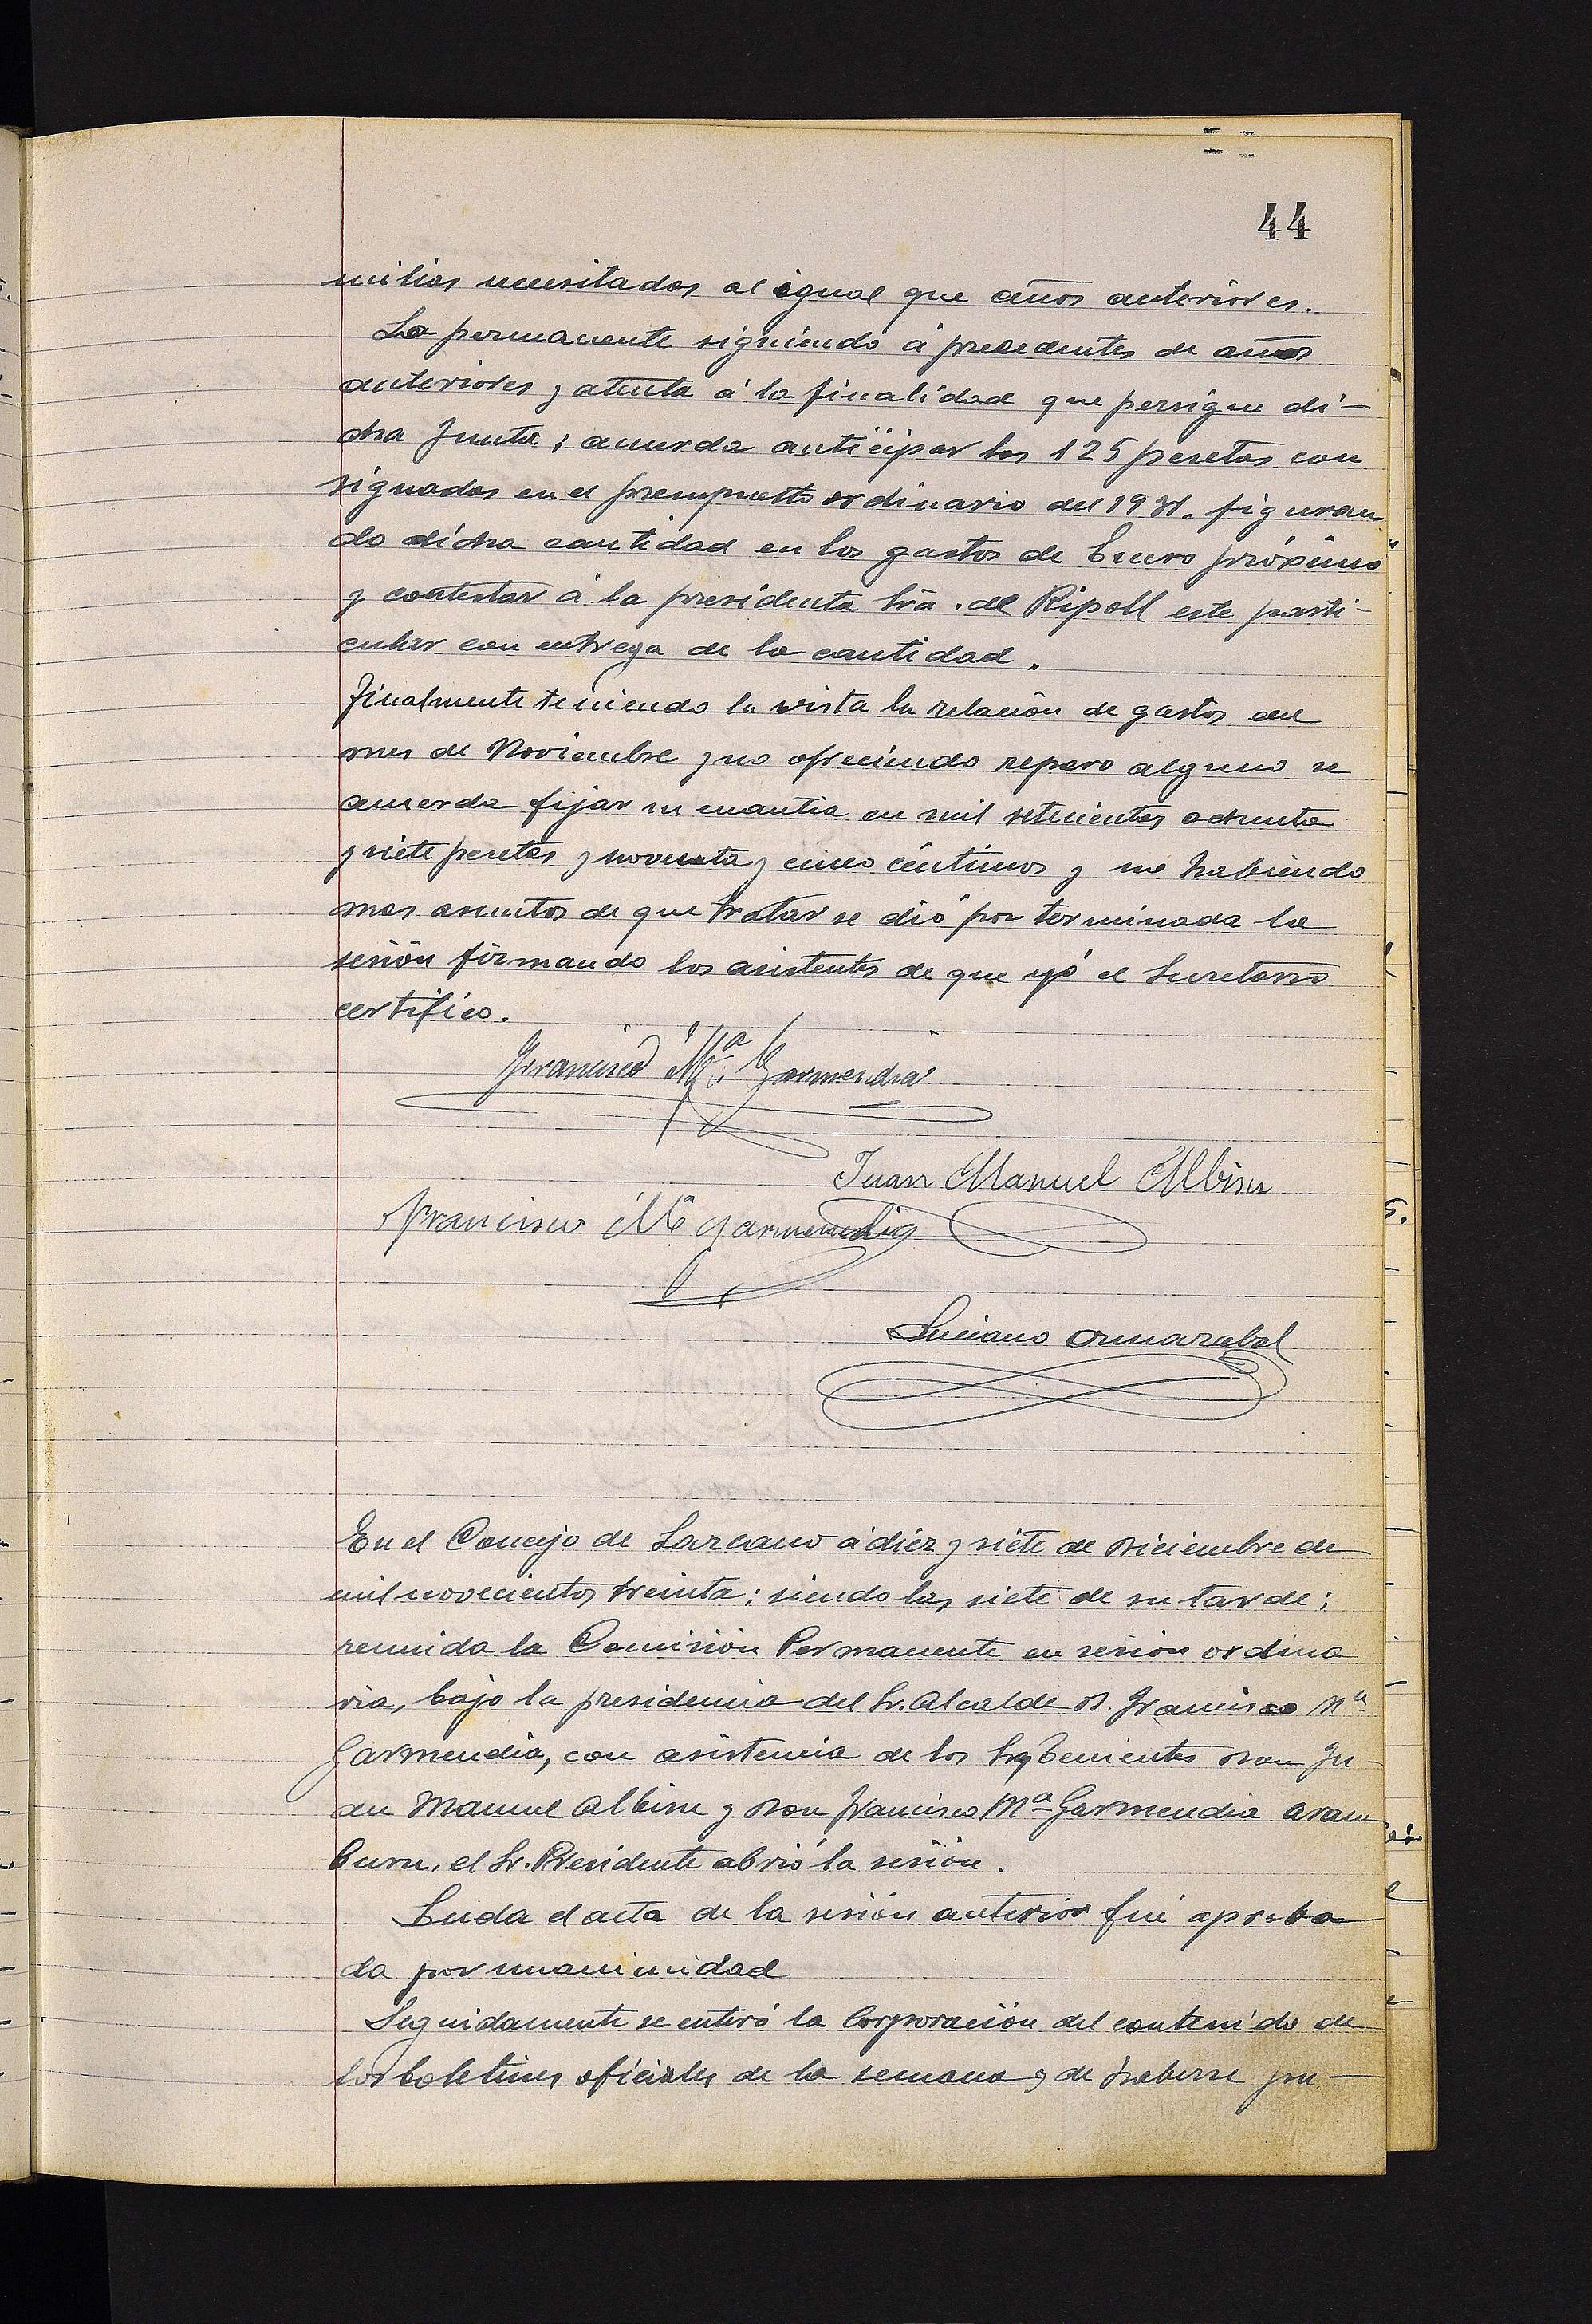 44
milias necesitadas al igual que años anteriores.
La permanente siguiendo á precedentes de años
anteriores y atenta á la finalidad que persigue di-
cha Junta; acuerda anticipar las 125 pesetas con
signadas en el presupuesto ordinario del 1931. figuran
do dicha cantidad en los gastos de Enero próximo
y contestar á la presidenta Sra. de Ripoll este parti-
cular con entrega de la cantidad.
Finalmente teniendo la vista la relación de gastos del
mes de Noviembre y no ofreciendo reparo alguno se
acuerda fijar su cuantia en mil setecientas ochenta
y siete pesetas y noventa y cinco céntimos y no habiendo
mas asuntos de que tratar se dió por terminada la
sesión firmando los asistentes de que yó el Secretario
certifico.
Francisco Mª Garmendia
Juan Manuel Albisu
Francisco Mª Garmendia
Luciano Ormazabal
En el Concejo de Lazcano á diez y siete de Diciembre de
mil novecientos treinta; siendo las siete de su tarde;
reunida la Comisión Permanente en sesión ordina
ria, bajo la presidencia del Sr. Alcalde D. Francisco Mª
Garmendia, con asistencia de los Sres Tenientes Don Ju-
an Manuel Albisu y Don Francisco Mª Garmendia Aram
buru, el Sr. Presidente abrió la sesión.
Leida el acta de la sesión anterior fué aproba
da por unanimidad
Seguidamente se enteró la Corporación del contenido de
los boletines oficiales de la semana y de haberse pu-